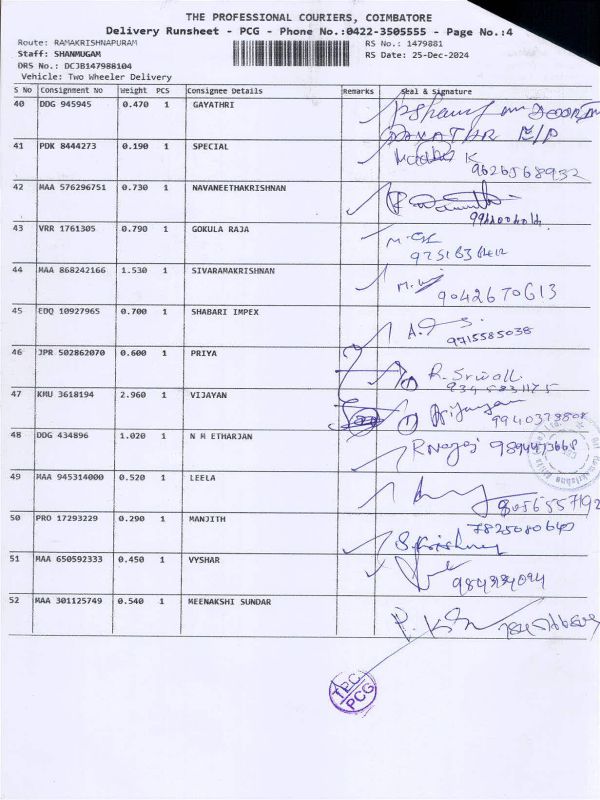 THE PROFESSIONAL COURIERS, COIMBATORE
Delivery Runsheet - PCG - Phone No.:0422-3505555 - Page No.:4
Route: RAMAKRISHNAPURAM RS No.: 1479881
Staff: SHANMUGAM RS Date: 25-Dec-2024
DRS No.: DCJB147988104
Vehicle: Two Wheeler Delivery
S No Consignment No Weight PCS Consignee Details Remarks Seal & Signature
40 DDG 945945 0.470 1 GAYATHRI
41 PDK 8444273 0.190 1 SPECIAL K
9626568932
42 MAA 576296751 0.730 1 NAVANEETHAKRISHNAN
43 VRR 1761305 0.790 1 GOKULA RAJA
44 MAA 868242166 1.530 1 SIVARAMAKRISHNAN
9042670613
45 EDQ 10927965 0.700 1 SHABARI IMPEX
9715585038
46 JPR 502862070 0.600 1 PRIYA
47 KMU 3618194 2.960 1 VIJAYAN
48 DDG 434896 1.020 1 N M ETHARJAN
49 MAA 945314000 0.520 1 LEELA
8056557192
50 PRO 17293229 0.290 1 MANJITH
51 MAA 650592333 0.450 1 VYSHAR
52 MAA 301125749 0.540 1 MEENAKSHI SUNDAR
TEC
PCG